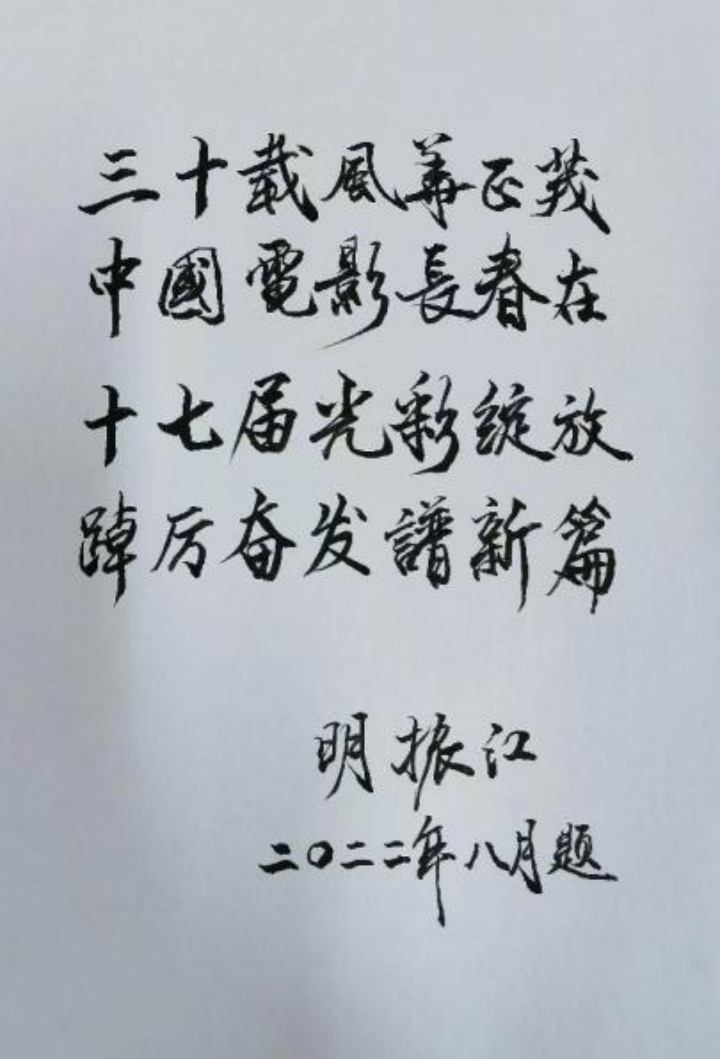 三十載風華正茂
中國電影長春在
十七届光彩綻放
踔厉奋发譜新篇
明振江
二〇二二年八月题